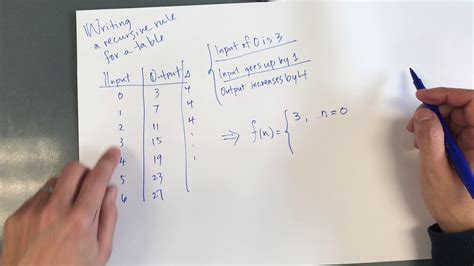 Writing
a recursive rule
for a table
Input Output Δ
0 3 4
1 7 4
2 11 4
3 15 :
4 19 :
5 23
6 27
Input of 0 is 3
Input goes up by 1
Output increases by 4
⇒ f(n) = { 3, n=0